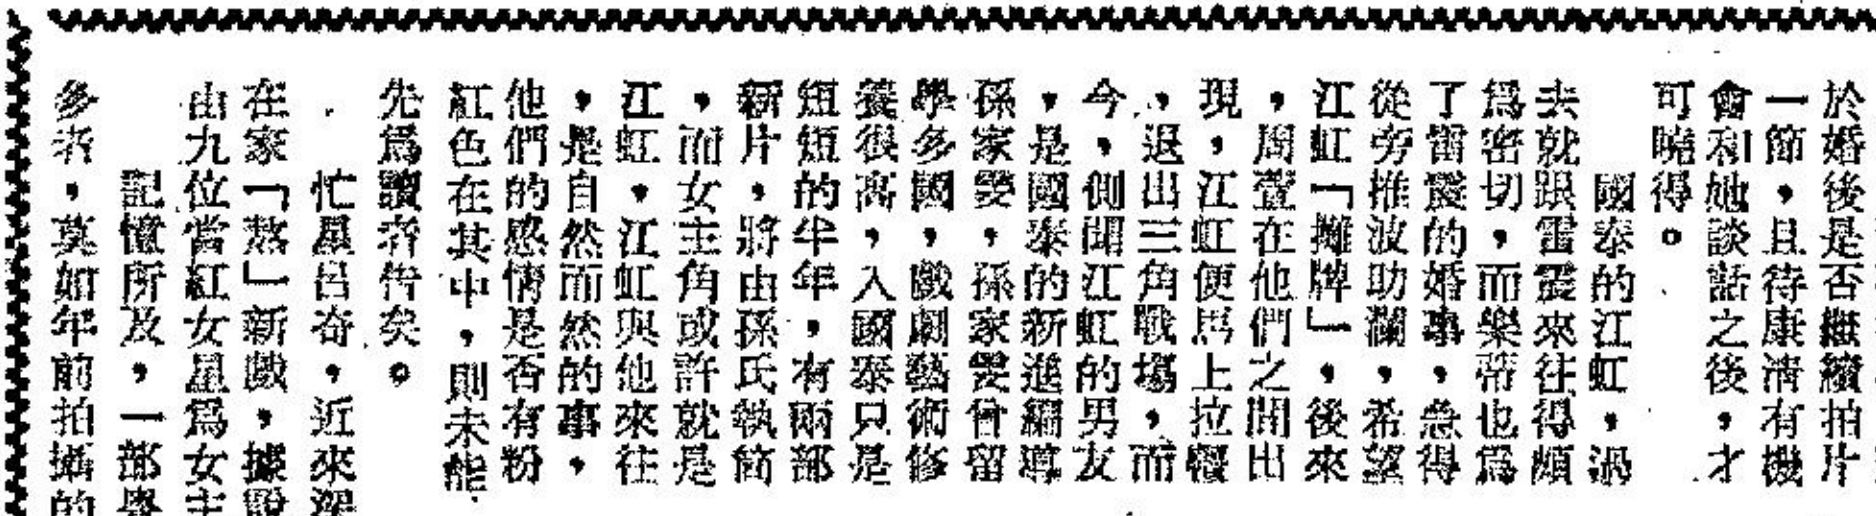 於婚後是否繼續拍片
一節，且待康淸有機
會和她談話之後，才
可曉得。
國泰的江虹，過
去就跟雷震來往得頗
爲密切，而樂蒂也爲
了雷震的婚事，急得
從旁推波助瀾，希望
江虹「攤牌」，後來
，周萱在他們之間出
現，江虹便馬上拉穩
，退出三角戰場，而
今，側聞江虹的男友
，是國泰的新進編導
孫家雯，孫家雯曾留
學多國，戲劇藝術修
養很高，入國泰只是
短短的半年，有兩部
新片，將由孫氏執筒
，而女主角或許就是
江虹，江虹與他來往
，是自然而然的事，
他們的感情是否有粉
紅色在其中，則未能
先爲讀者告矣。
忙星呂奇，近來深
在家「熬」新戲，據說
由九位當紅女星爲女主
記憶所及，一部
多者，莫如年前拍攝的